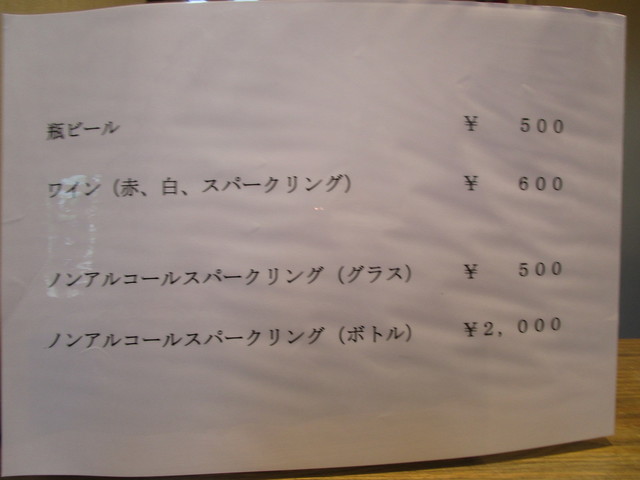 瓶ビール ¥ 500
ワイン（赤、白、スパークリング） ¥ 600
ノンアルコールスパークリング（グラス） ¥ 500
ノンアルコールスパークリング（ボトル） ¥2，000